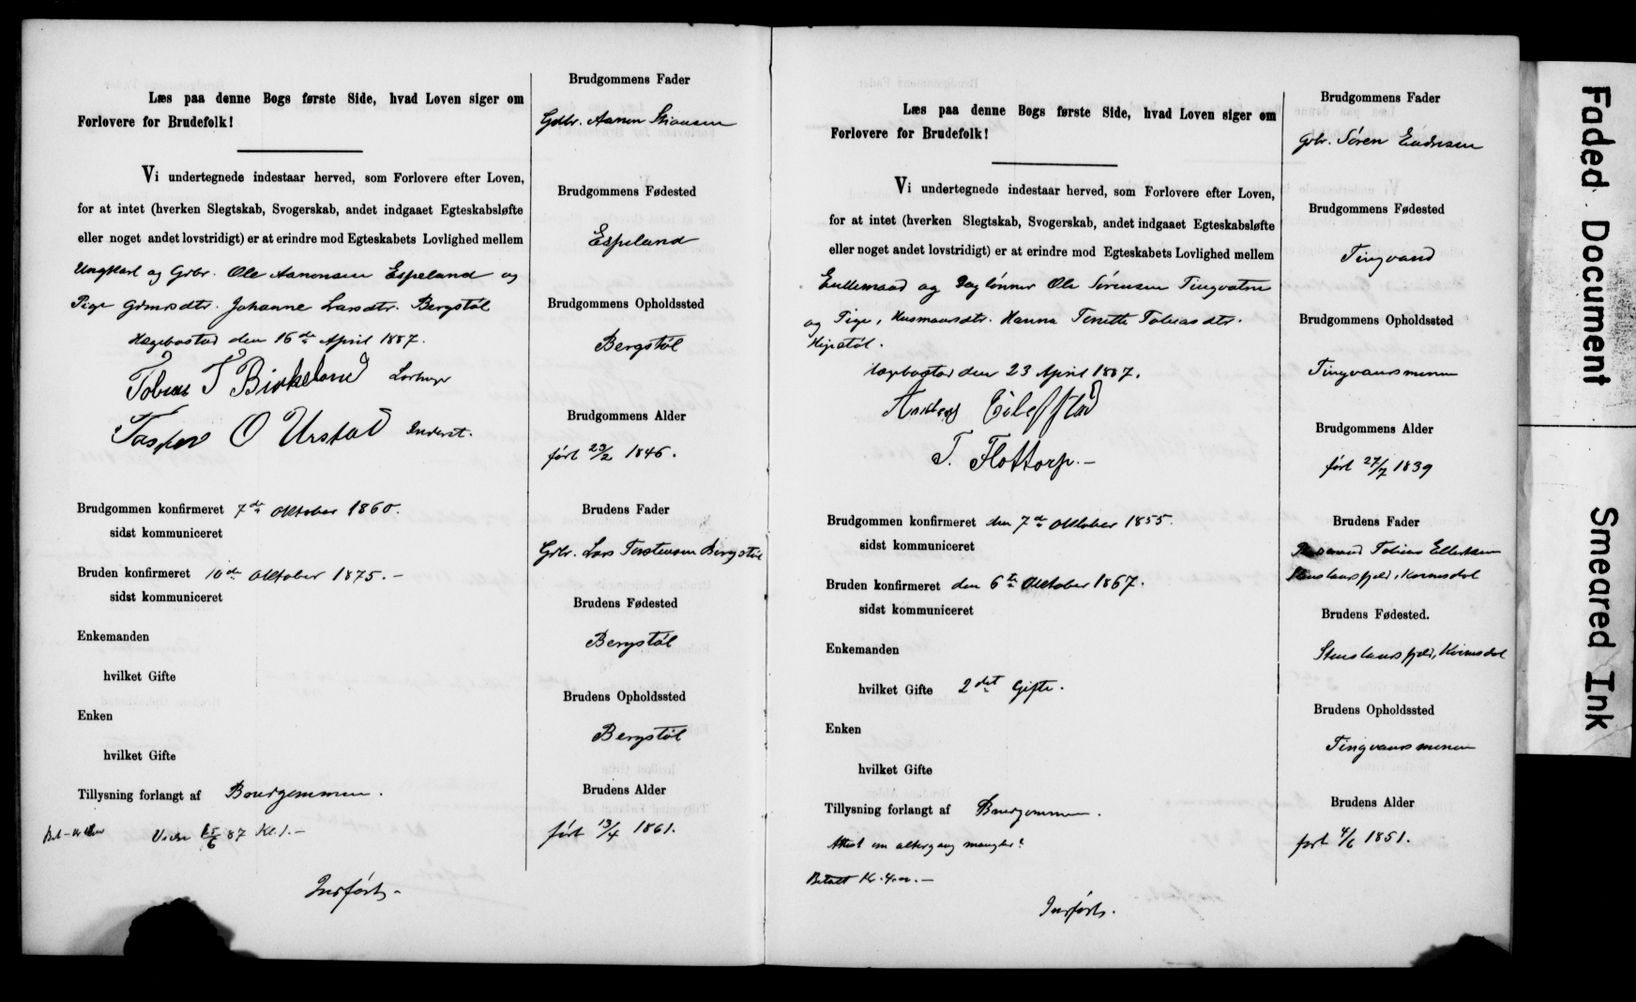 Læs paa denne Bogs første Side, hvad Loven siger om
Forlovere for Brudefolk!
Vi undertegnede indestaar herved, som Forlovere efter Loven,
for at intet (hverken Slegtskab, Svogerskab, andet indgaaet Egteskabsløfte
eller noget andet lovstridigt) er at erindre mod Egteskabets Lovlighed mellem
Ungkarl og Grbr. Ole Aanonsen Espeland og
Pige Grmdsdtr. Johanne Larsdtr. Bergstøl
Hægebostad den 16de April 1887.
Tobias T Birkeland
O Urstad Inderst.
Brudgommen konfirmeret 7de Oktober 1860.
sidst kommuniceret
Bruden konfirmeret 10de Oktober 1875. -
sidst kommuniceret
Enkemanden
hvilket Gifte
Enken
hvilket Gifte
Tillysning forlangt af Brudgommen.
87 Kr. 1. -
Indført -
Brudgommens Fader
Gdbr. Aanon
Brudgommens Fødested
Espeland
Brudgommens Opholdssted
Bergstøl
Brudgommens Alder
født 23/2 1846.
Brudens Fader
Grbr. Lars Torstensen Bergstøl
Brudens Fødested
Bergstøl
Brudens Opholdssted
Bergstøl
Brudens Alder
født 13/4 1861.
Læs paa denne Bogs første Side, hvad Loven siger om
Forlovere for Brudefolk!
Vi undertegnede indestaar herved, som Forlovere efter Loven,
for at intet (hverken Slegtskab, Svogerskab, andet indgaaet Egteskabsløfte
eller noget andet lovstridigt) er at erindre mod Egteskabets Lovlighed mellem
Enkemand og Daglønner Ole Sørensen Tingvatne
og Pige, Husmansdtr. Hanna Tonette Tobiasdtr.
Hægebostad den 23 April 1887.
T. Flottorp. -
Brudgommen konfirmeret den 7de Oktober 1855.
sidst kommuniceret
Bruden konfirmeret den 6te Oktober 1867.
sidst kommuniceret
Enkemanden
hvilket Gifte 2det Gifte.
Enken
hvilket Gifte
Tillysning forlangt af Brudgommen.
Attest om altergang mangler!
Betalt Kr. 4.00. -
Indført.
Brudgommens Fader
Gbr. Søren Endresen
Brudgommens Fødested
Tingvand
Brudgommens Opholdssted
Tingvandsmoen
Brudgommens Alder
født 27/7 1839
Brudens Fader
Husmand Tobias Ellertsen
Brudens Fødested.
Brudens Opholdssted
Tingvandsmoen
Brudens Alder
født 4/6 1851.
Faded Document
Smeared Ink